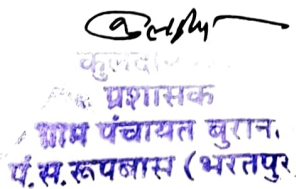 प्रशासक
ग्राम पंचायत बुरान.
पं.स.रूपबास (भरतपुर